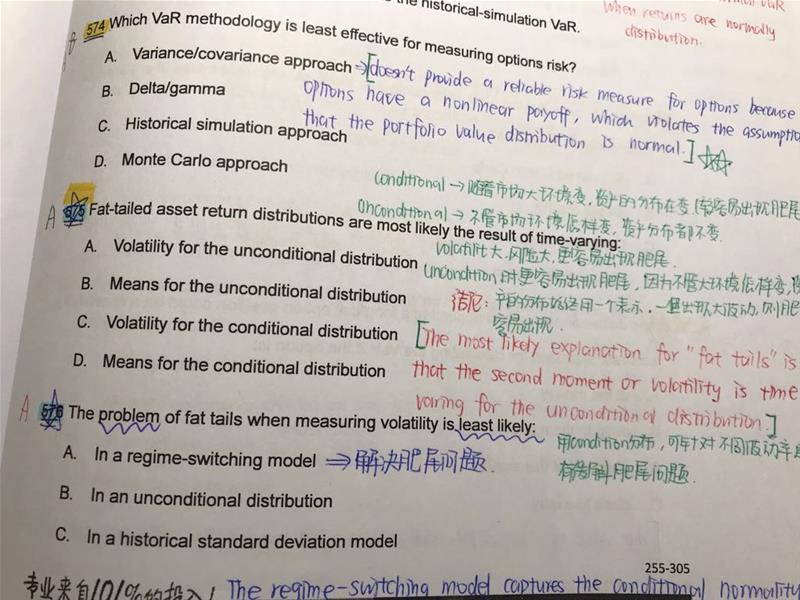 the historical-simulation VaR.
when returns are normally
distribution.
574 Which VaR methodology is least effective for measuring options risk?
A. Variance/covariance approach ⇒ [doesn't provide a reliable risk measure for options because
B. Delta/gamma
options have a nonlinear payoff, which violates the assumptio
C. Historical simulation approach
that the portfolio value distribution is normal.]
D. Monte Carlo approach
Conditional → 随着市场大环境变, 资产的分布在变 (容易出现肥尾
Unconditional → 不管市场环境怎样变, 资产分布都不变.
A 575 Fat-tailed asset return distributions are most likely the result of time-varying:
A. Volatility for the unconditional distribution
volatility大, 风险大, 更容易出现肥尾.
B. Means for the unconditional distribution
uncondition时更容易出现肥尾, 因为不管大环境怎样变,
C. Volatility for the conditional distribution
容易出现.
[The most likely explanation for "fat tails" is
D. Means for the conditional distribution
that the second moment or volatility is time
varing for the unconditional distribution.]
A 576 The problem of fat tails when measuring volatility is least likely:
用condition分布, 可针对不同波动率
A. In a regime-switching model ⇒ 解决肥尾问题.
肥尾问题.
B. In an unconditional distribution
C. In a historical standard deviation model
255-305
专业来自101%的投入! The regime-switching model captures the conditional normality